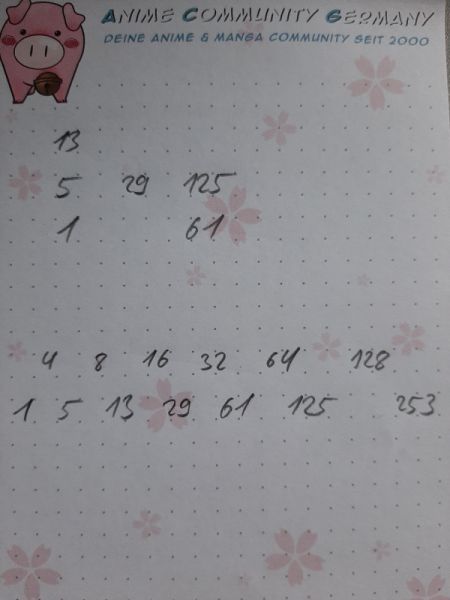 ANIME COMMUNITY GERMANY
DEINE ANIME & MANGA COMMUNITY SEIT 2000
13
5 29 125
1 61
4 8 16 32 64 128
1 5 13 29 61 125 253